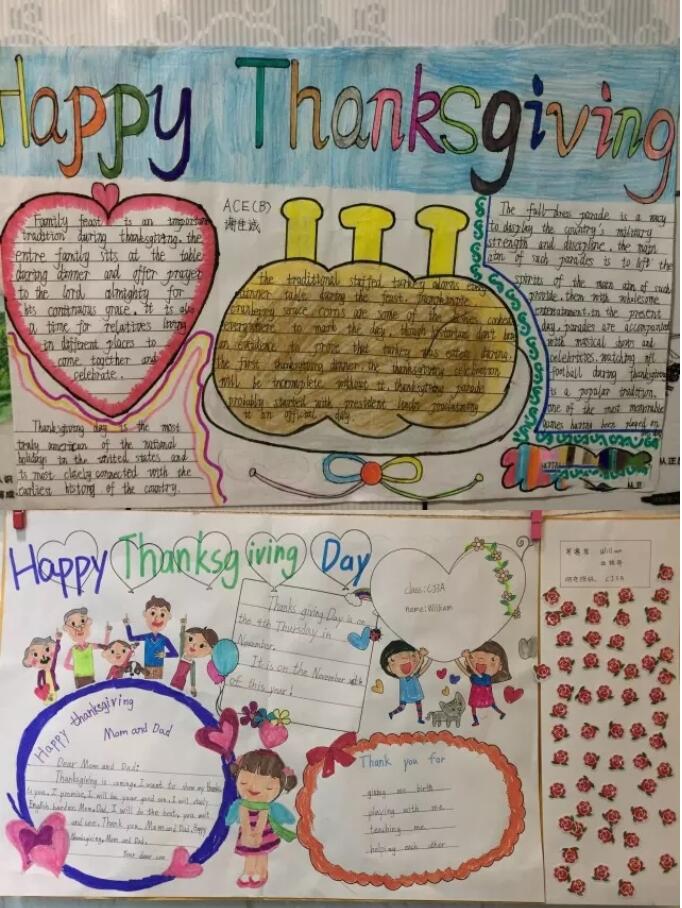 Happy Thanksgiving
Family feast is an important
tradition during thanksgiving. the
entire family sits at the table
during dinner and offer prayer
to the lord almighty for
his continuous grace. it is also
a time for relatives living
in different places to
come together and
celebrate.
Thanksgiving day is the most
truly american of the national
holidays in the united states and
is most closely connected with the
earliest history of the country.
ACE(B)
the traditional stuffed turkey adorns every
dinner table during the feast.
cranberry sauce corns are some of the
everywhere to mark the day. though historian don't
an evidence to prove that turkey was eaten during
the first thanksgiving dinner. the thanksgiving celebration
will be incomplete without it. thanksgiving parade
probably started with president proclaiming
it an official day.
The full-dress parade is a way
to display the country's military
strength and discipline. the main
aim of such parades is to lift the
spirits of the main aim of such
provide them with wholesome
entertainment. in the present
day, parades are accompanied
with musical shows and
celebrities. watching nfl
football during thanksgiving
is a popular tradition.
one of the most memorable
games having been played on
Happy Thanksgiving Day
class: C33A
name: William
Thanks giving Day is on
the 4th Thursday in
November.
It is on the November
of this year!
Happy thanksgiving
Mom and Dad
Dear Mom and Dad:
Thanksgiving is coming. I want to show my thanks
to you. I promise, I will be your good son. I will study
English harder. Mom, Dad, I will do the best. you wait
and see. Thank you, Mom and Dad. Happy
Thanksgiving, Mom and Dad.
Your dear son
Thank you for
giving me birth
playing with me
teaching me
helping each other
William